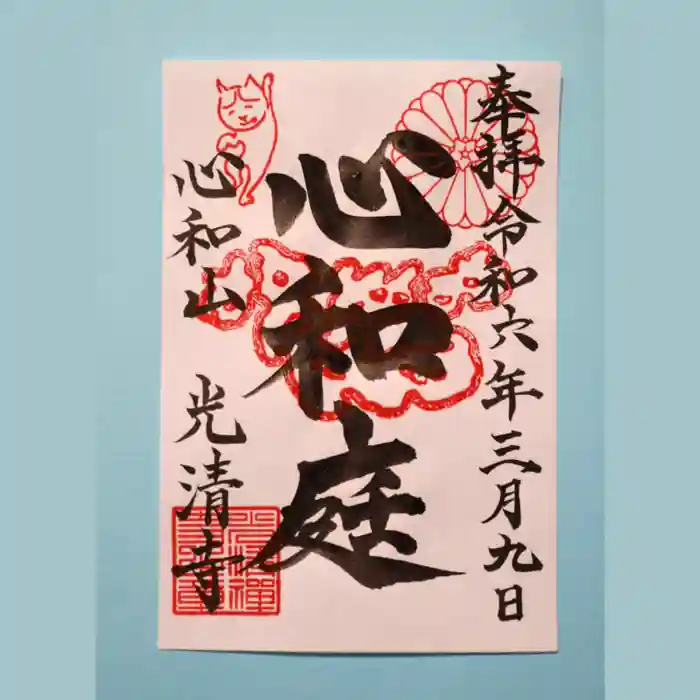 奉拝令和六年三月九日
心和庭
心和山 光清寺